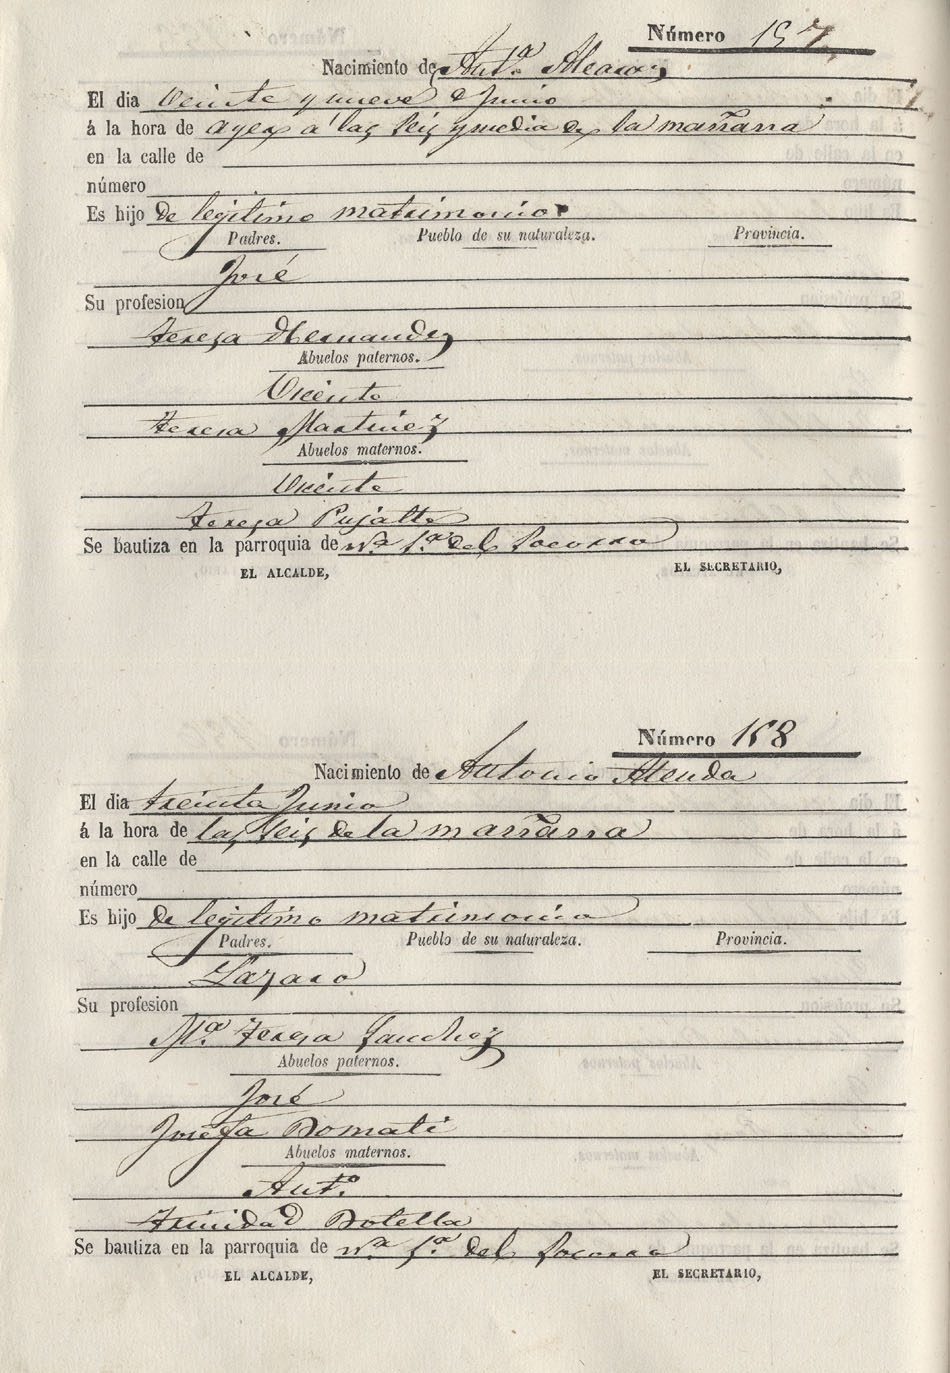 Número 157
Nacimiento de Antª Alcaraz
El dia Veinte y nueve d Junio
á la hora de ayer a las seis y media de la mañana
en la calle de
número
Es hijo de legitimo matrimonio
Padres. Pueblo de su naturaleza. Provincia.
José
Su profesion
teresa Hernandez
Abuelos paternos.
Vicente
teresa Martinez
Abuelos maternos.
Vicente
teresa Pujalte
Se bautiza en la parroquia de Nª Sª del Socorro
EL ALCALDE, EL SECRETARIO,
Número 158
Nacimiento de Antonio Alenda
El dia treinta Junio
á la hora de las seis de la mañana
en la calle de
número
Es hijo de legitimo matrimonio
Padres. Pueblo de su naturaleza. Provincia.
Lazaro
Su profesion
Mª teresa Sanchez
Abuelos paternos.
José
Josefa Domati
Abuelos maternos.
Antº
trinidad Botella
Se bautiza en la parroquia de Nª Sª del Socorro
EL ALCALDE, EL SECRETARIO,